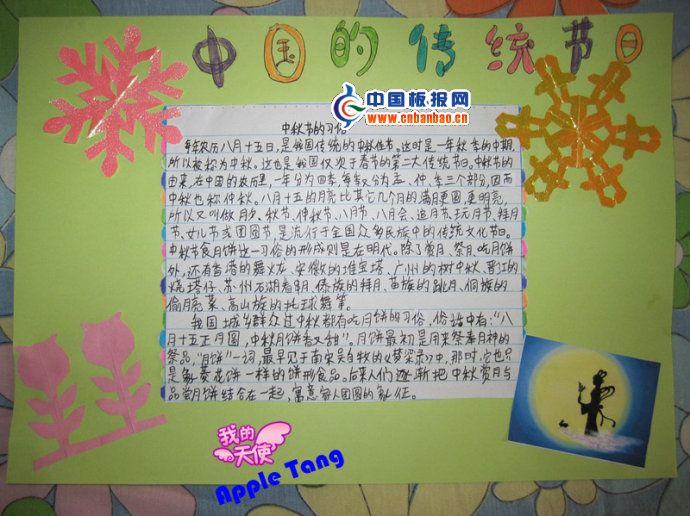 中国的传统节日
中国板报网
www.cnbanbao.cn
中秋节的习俗
每年农历八月十五日,是我国传统的中秋佳节。这时是一年秋季的中期,
所以被称为中秋。这也是我国仅次于春节的第二大传统节日。中秋节的
由来,在中国的农历里,一年分为四季,每季又分为孟、仲、季三个部分,因而
中秋也称仲秋。八月十五的月亮比其它几个月的满月更圆,更明亮,
所以又叫做月夕、秋节、仲秋节、八月节、八月会、追月节、玩月节、拜月
节、女儿节或团圆节,是流行于全国众多民族中的传统文化节日。
中秋节食月饼这一习俗的形成则是在明代。除了赏月、祭月、吃月饼
外,还有香港的舞火龙、安徽的堆宝塔、广州的树中秋、晋江的
烧塔仔、苏州石湖看串月、傣族的拜月、苗族的跳月、侗族的
偷月亮菜、高山族的托球舞等。
我国城乡群众过中秋都有吃月饼的习俗,俗话中有:“八
月十五月正圆,中秋月饼香又甜”。月饼最初是用来祭奉月神的
祭品,“月饼”一词,最早见于南宋吴自牧的《梦梁录》中,那时,它也只
是象菱花饼一样的饼形食品。后来人们逐渐把中秋赏月与
品尝月饼结合在一起,寓意家人团圆的象征。
我的
天使
Apple Tang